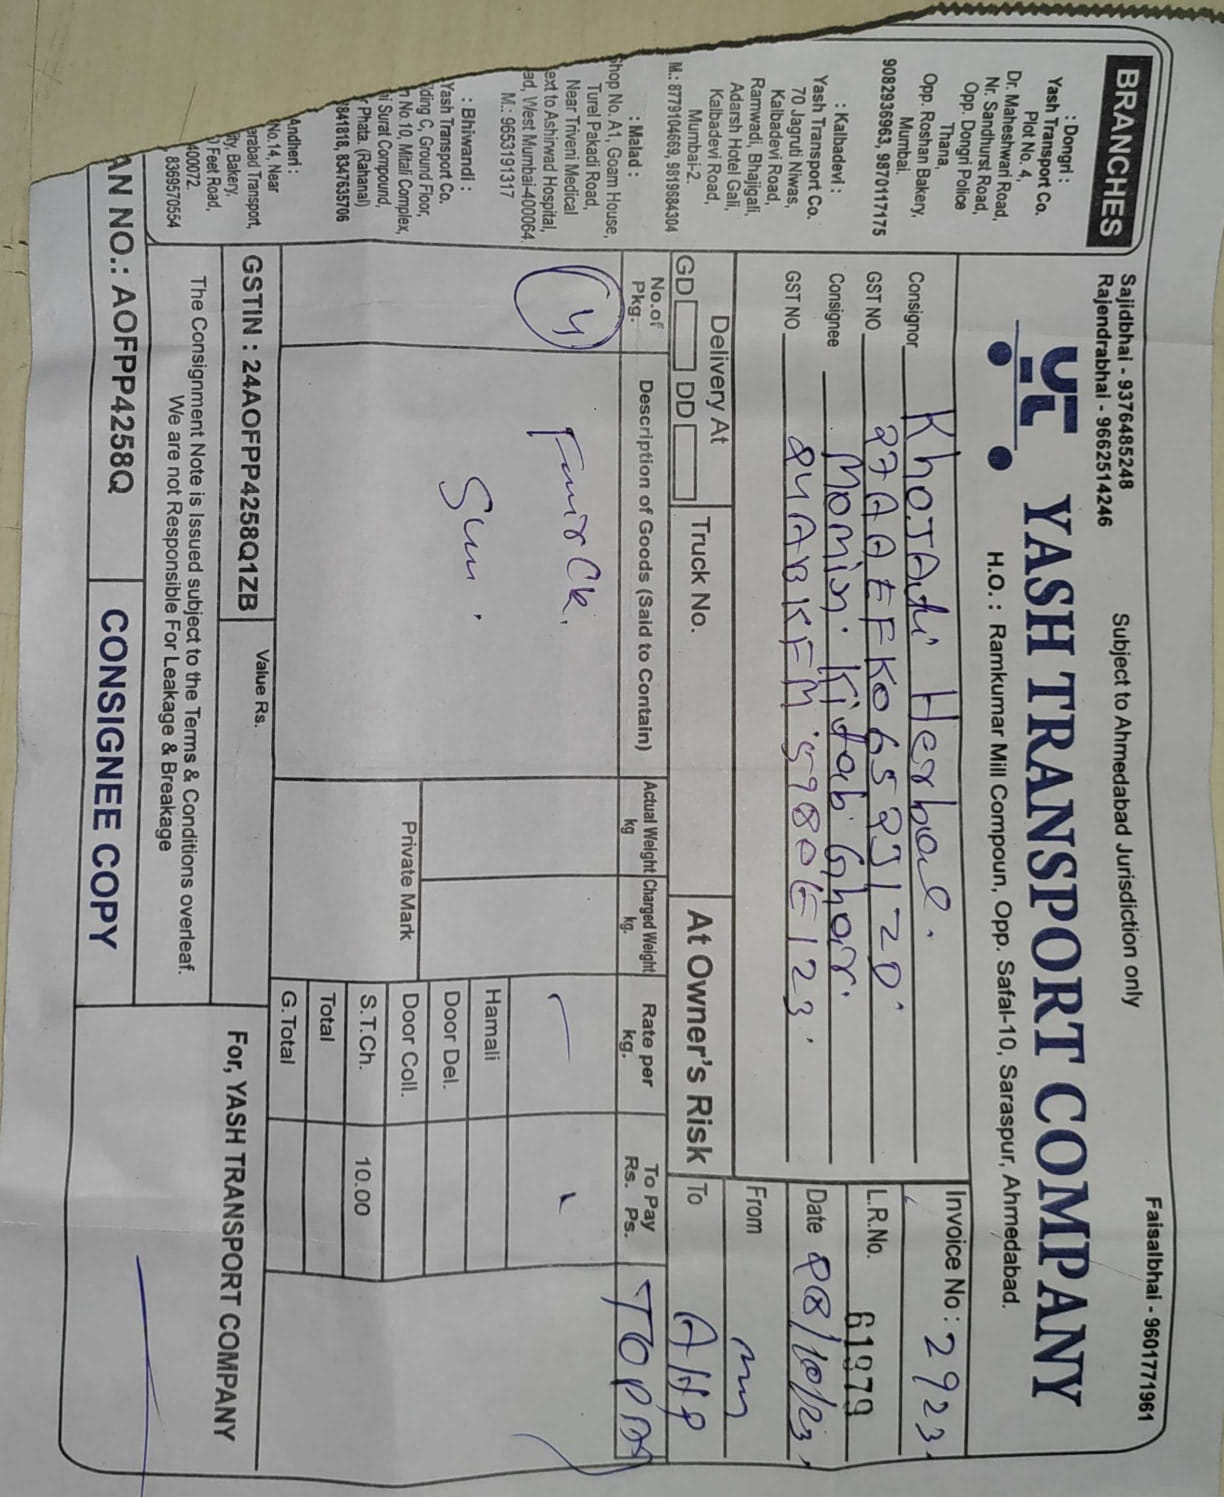 Sajidbhai - 9376485248
Rajendrabhai - 9662514246
Subject to Ahmedabad Jurisdiction only
Faisalbhai - 9601771961
YASH TRANSPORT COMPANY
H.O. : Ramkumar Mill Compoun, Opp. Safal-10, Saraspur, Ahmedabad.
BRANCHES
: Dongri :
Yash Transport Co.
Plot No. 4,
Dr. Maheshwari Road,
Nr. Sandhurst Road,
Opp. Dongri Police
Thana,
Opp. Roshan Bakery,
Mumbai.
9082936963, 9870117175
: Kalbadevi :
Yash Transport Co.
70 Jagruti Niwas,
Kalbadevi Road,
Ramwadi, Bhajigali,
Adarsh Hotel Gali,
Kalbadevi Road,
Mumbai-2.
M.: 8779104669, 9819984304
: Malad :
Shop No. A1, Goam House,
Turel Pakadi Road,
Near Triveni Medical
ext to Ashirwad Hospital,
ad, West Mumbai-400064.
M.: 9653191317
: Bhiwandi :
Yash Transport Co.
lding C, Ground Floor,
No.10, Mitali Complex,
i Surat Compound,
Phata. (Rahanal)
841818, 8347635706
Andheri :
erabad Transport,
No.14, Near
By. Bakery,
Feet Road,
400072.
8369570554
Consignor Khojati Herbal.
GST NO 27AAEFK065291ZD
Consignee Momin Kitab Ghar.
GST NO 24ABKFM5980E1Z3
Invoice No : 2923
L.R.No. 61979
Date 28/10/23
From
To
Delivery At
GD DD
Truck No.
At Owner's Risk
No.of Pkg.
Description of Goods (Said to Contain)
Actual Weight kg
Charged Weight kg.
Rate per kg.
To Pay Rs. Ps.
TOPAY
Hamali
Door Del.
Private Mark
Door Coll.
S.T.Ch. 10.00
Total
G.Total
GSTIN : 24AOFPP4258Q1ZB
Value Rs.
For, YASH TRANSPORT COMPANY
The Consignment Note is Issued subject to the Terms & Conditions overleaf.
We are not Responsible For Leakage & Breakage
AN NO.: AOFPP4258Q
CONSIGNEE COPY